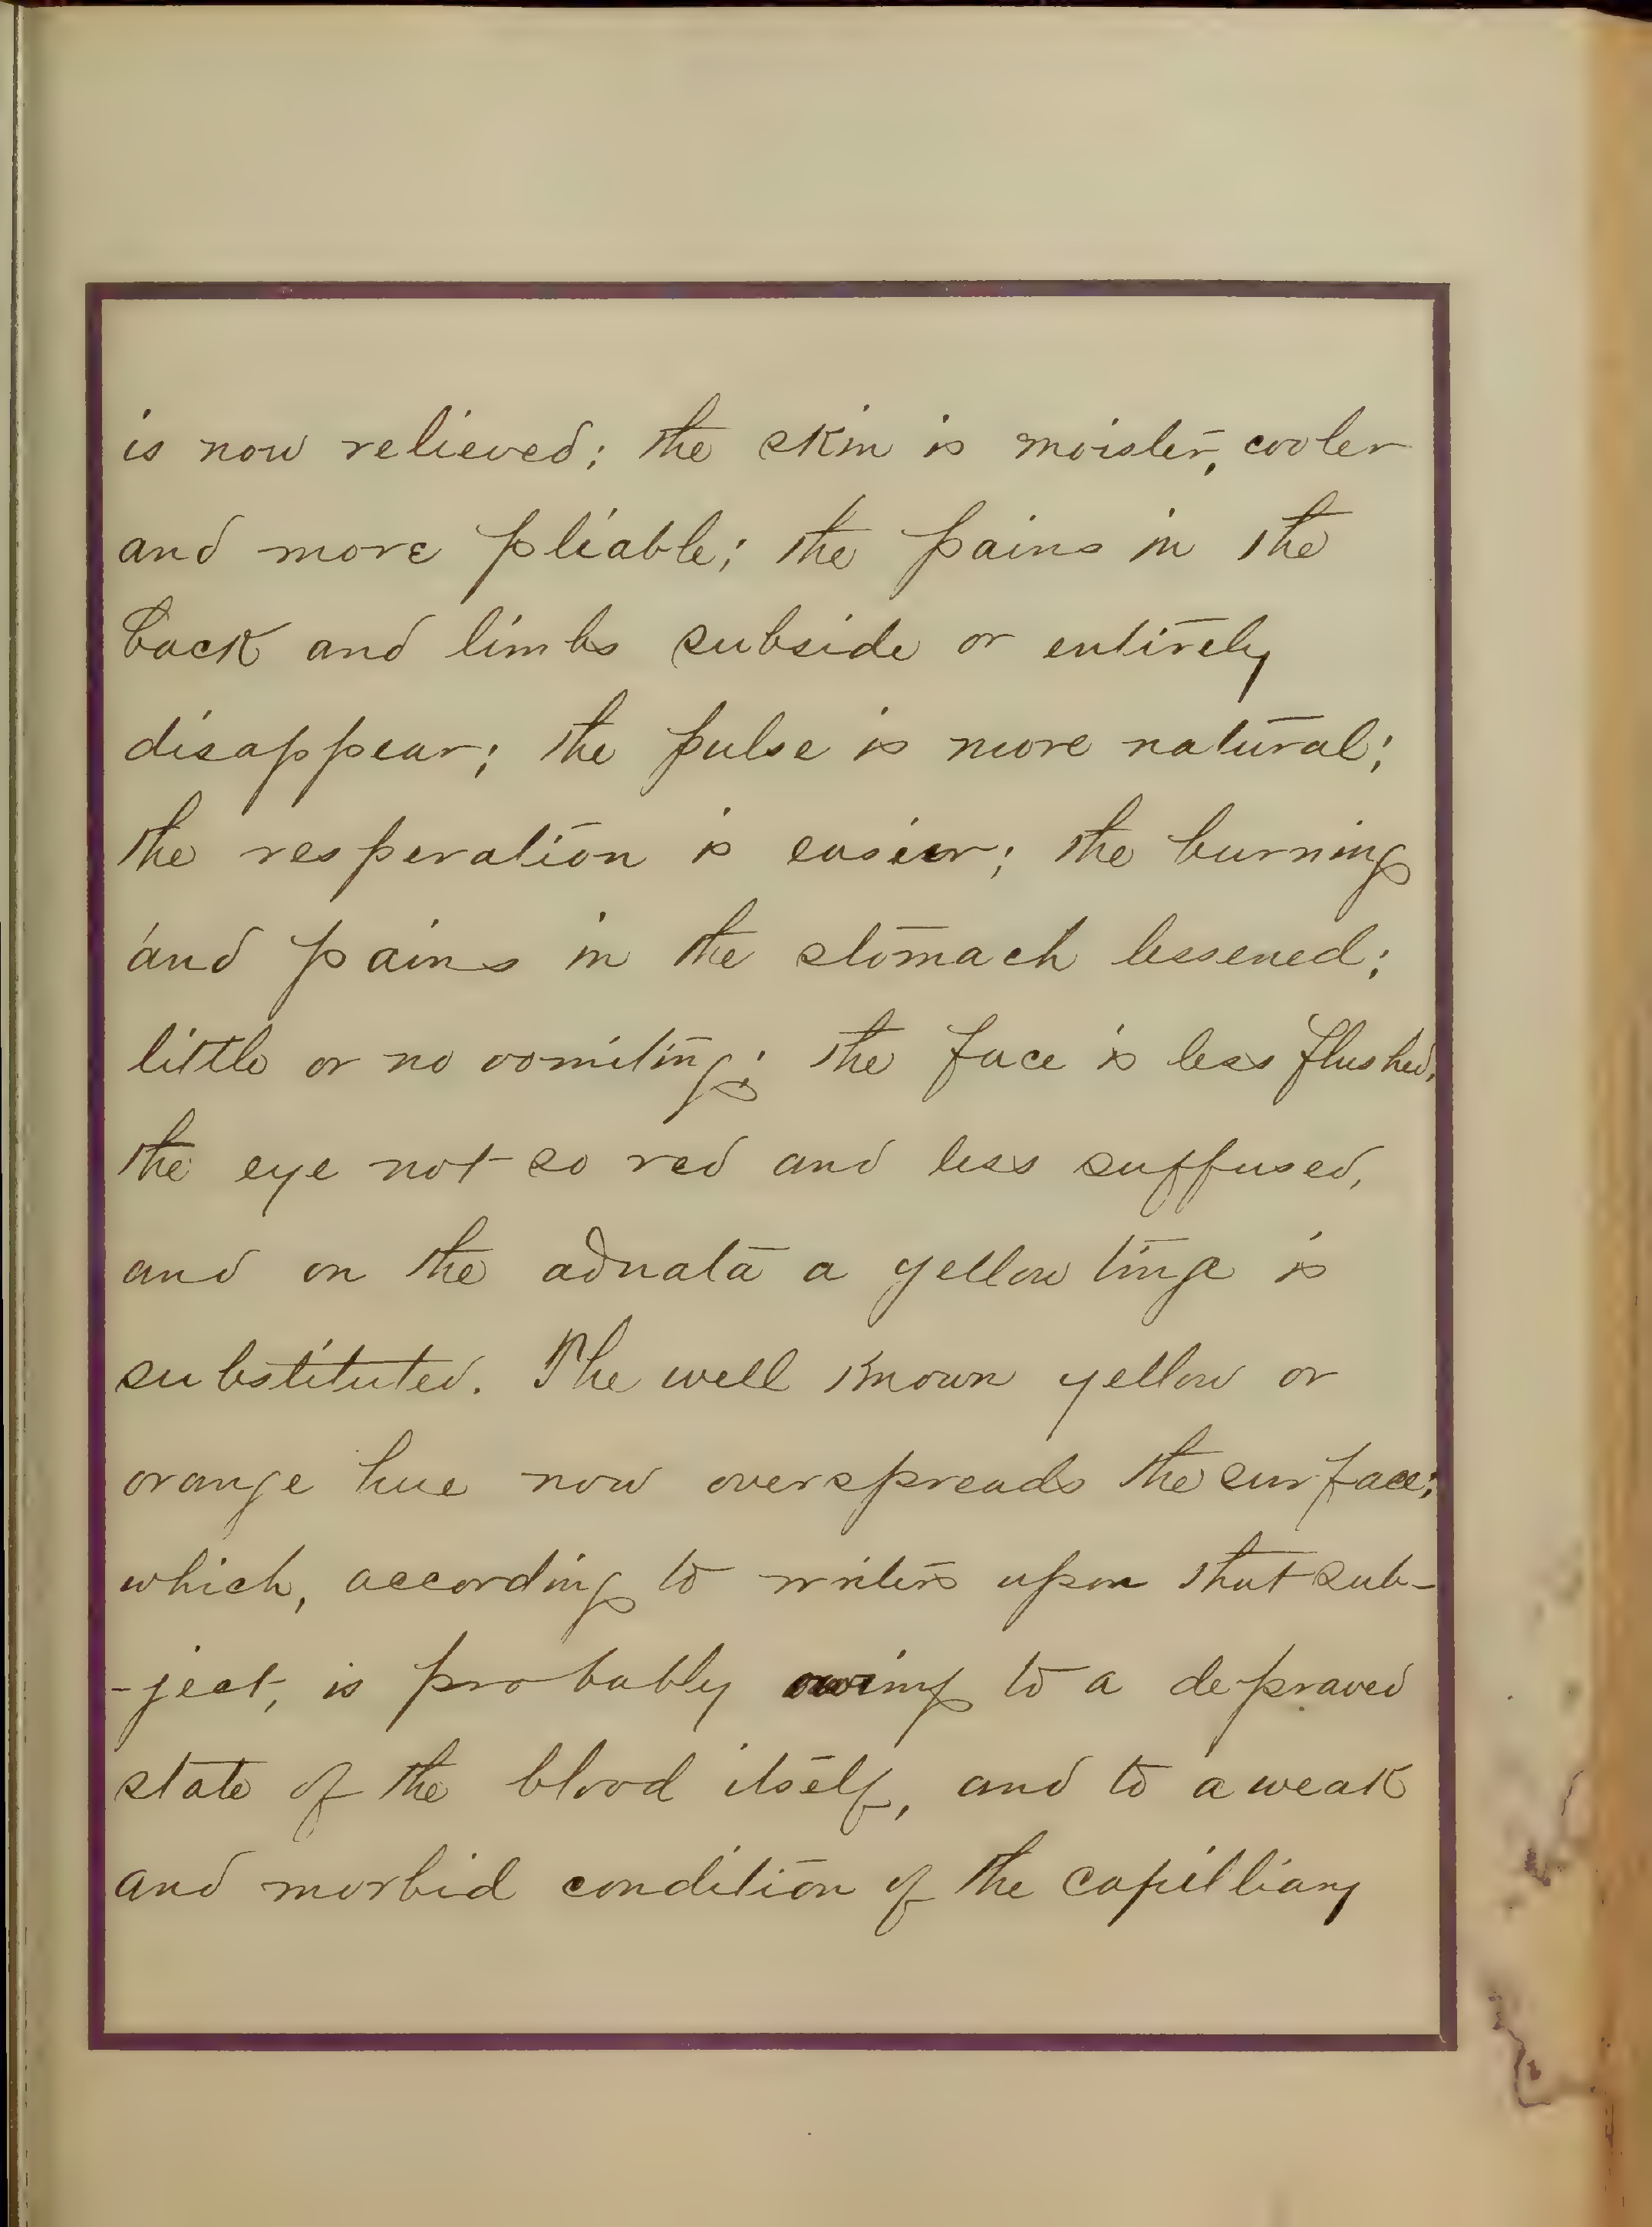 is now relieved; the skin is moister, cooler
and more pliable; the pains in the
back and limbs subside or entirely
disappear; the pulse is more natural;
the resperation is easier; the burning
and pains in the stomach lessened;
little or no vomiting; the face is less flushed,
the eye not so red and less suffused,
and on the adnata a yellow tinge is
substituted. The well known yellow or
orange hue now overspreads the surface;
which, according to writers upon that sub-
-ject, is probably owing to a depraved
state of the blood itself, and to a weak
and morbid condition of the capilliary